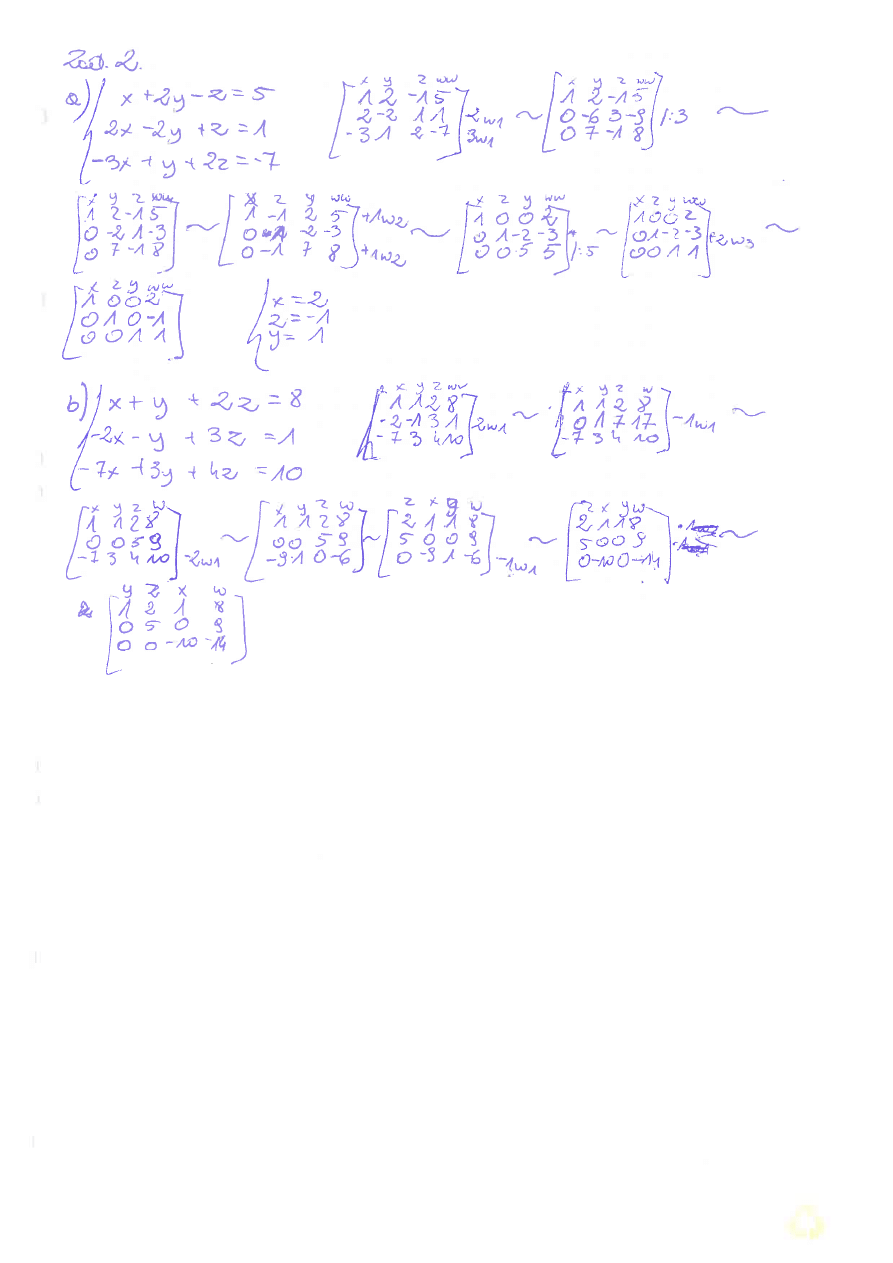 Zad. 2.
a) x + 2y - z = 5
2x - 2y + z = 1
-3x + y + 2z = -7
x y z ww
1 2 -1 5
2 -2 1 1 -2w1
-3 1 2 -7 3w1
~
x y z ww
1 2 -1 5
0 -6 3 -9 /:3
0 7 -1 8
~
x y z ww
1 2 -1 5
0 -2 1 -3
0 7 -1 8
~
x z y ww
1 -1 2 5 +1w2
0 1 -2 -3
0 -1 7 8 +1w2
~
x z y ww
1 0 0 2
0 1 -2 -3
0 0 5 5 /:5
~
x z y ww
1 0 0 2
0 1 -2 -3 +2w3
0 0 1 1
~
x z y ww
1 0 0 2
0 1 0 -1
0 0 1 1
x = 2
z = -1
y = 1
b) x + y + 2z = 8
-2x - y + 3z = 1
-7x + 3y + 4z = 10
x y z ww
1 1 2 8
-2 -1 3 1 2w1
-7 3 4 10
~
x y z w
1 1 2 8
0 1 7 17 -1w1
-7 3 4 10
~
x y z w
1 1 2 8
0 0 5 9
-7 3 4 10 -2w1
~
x y z w
1 1 2 8
0 0 5 9
-9 1 0 -6
~
z x y w
2 1 1 8
5 0 0 9
0 -9 1 -6 -1w1
~
z x y w
2 1 1 8
5 0 0 9
0 -10 0 -14
~
y z x w
1 2 1 8
0 5 0 9
0 0 -10 -14